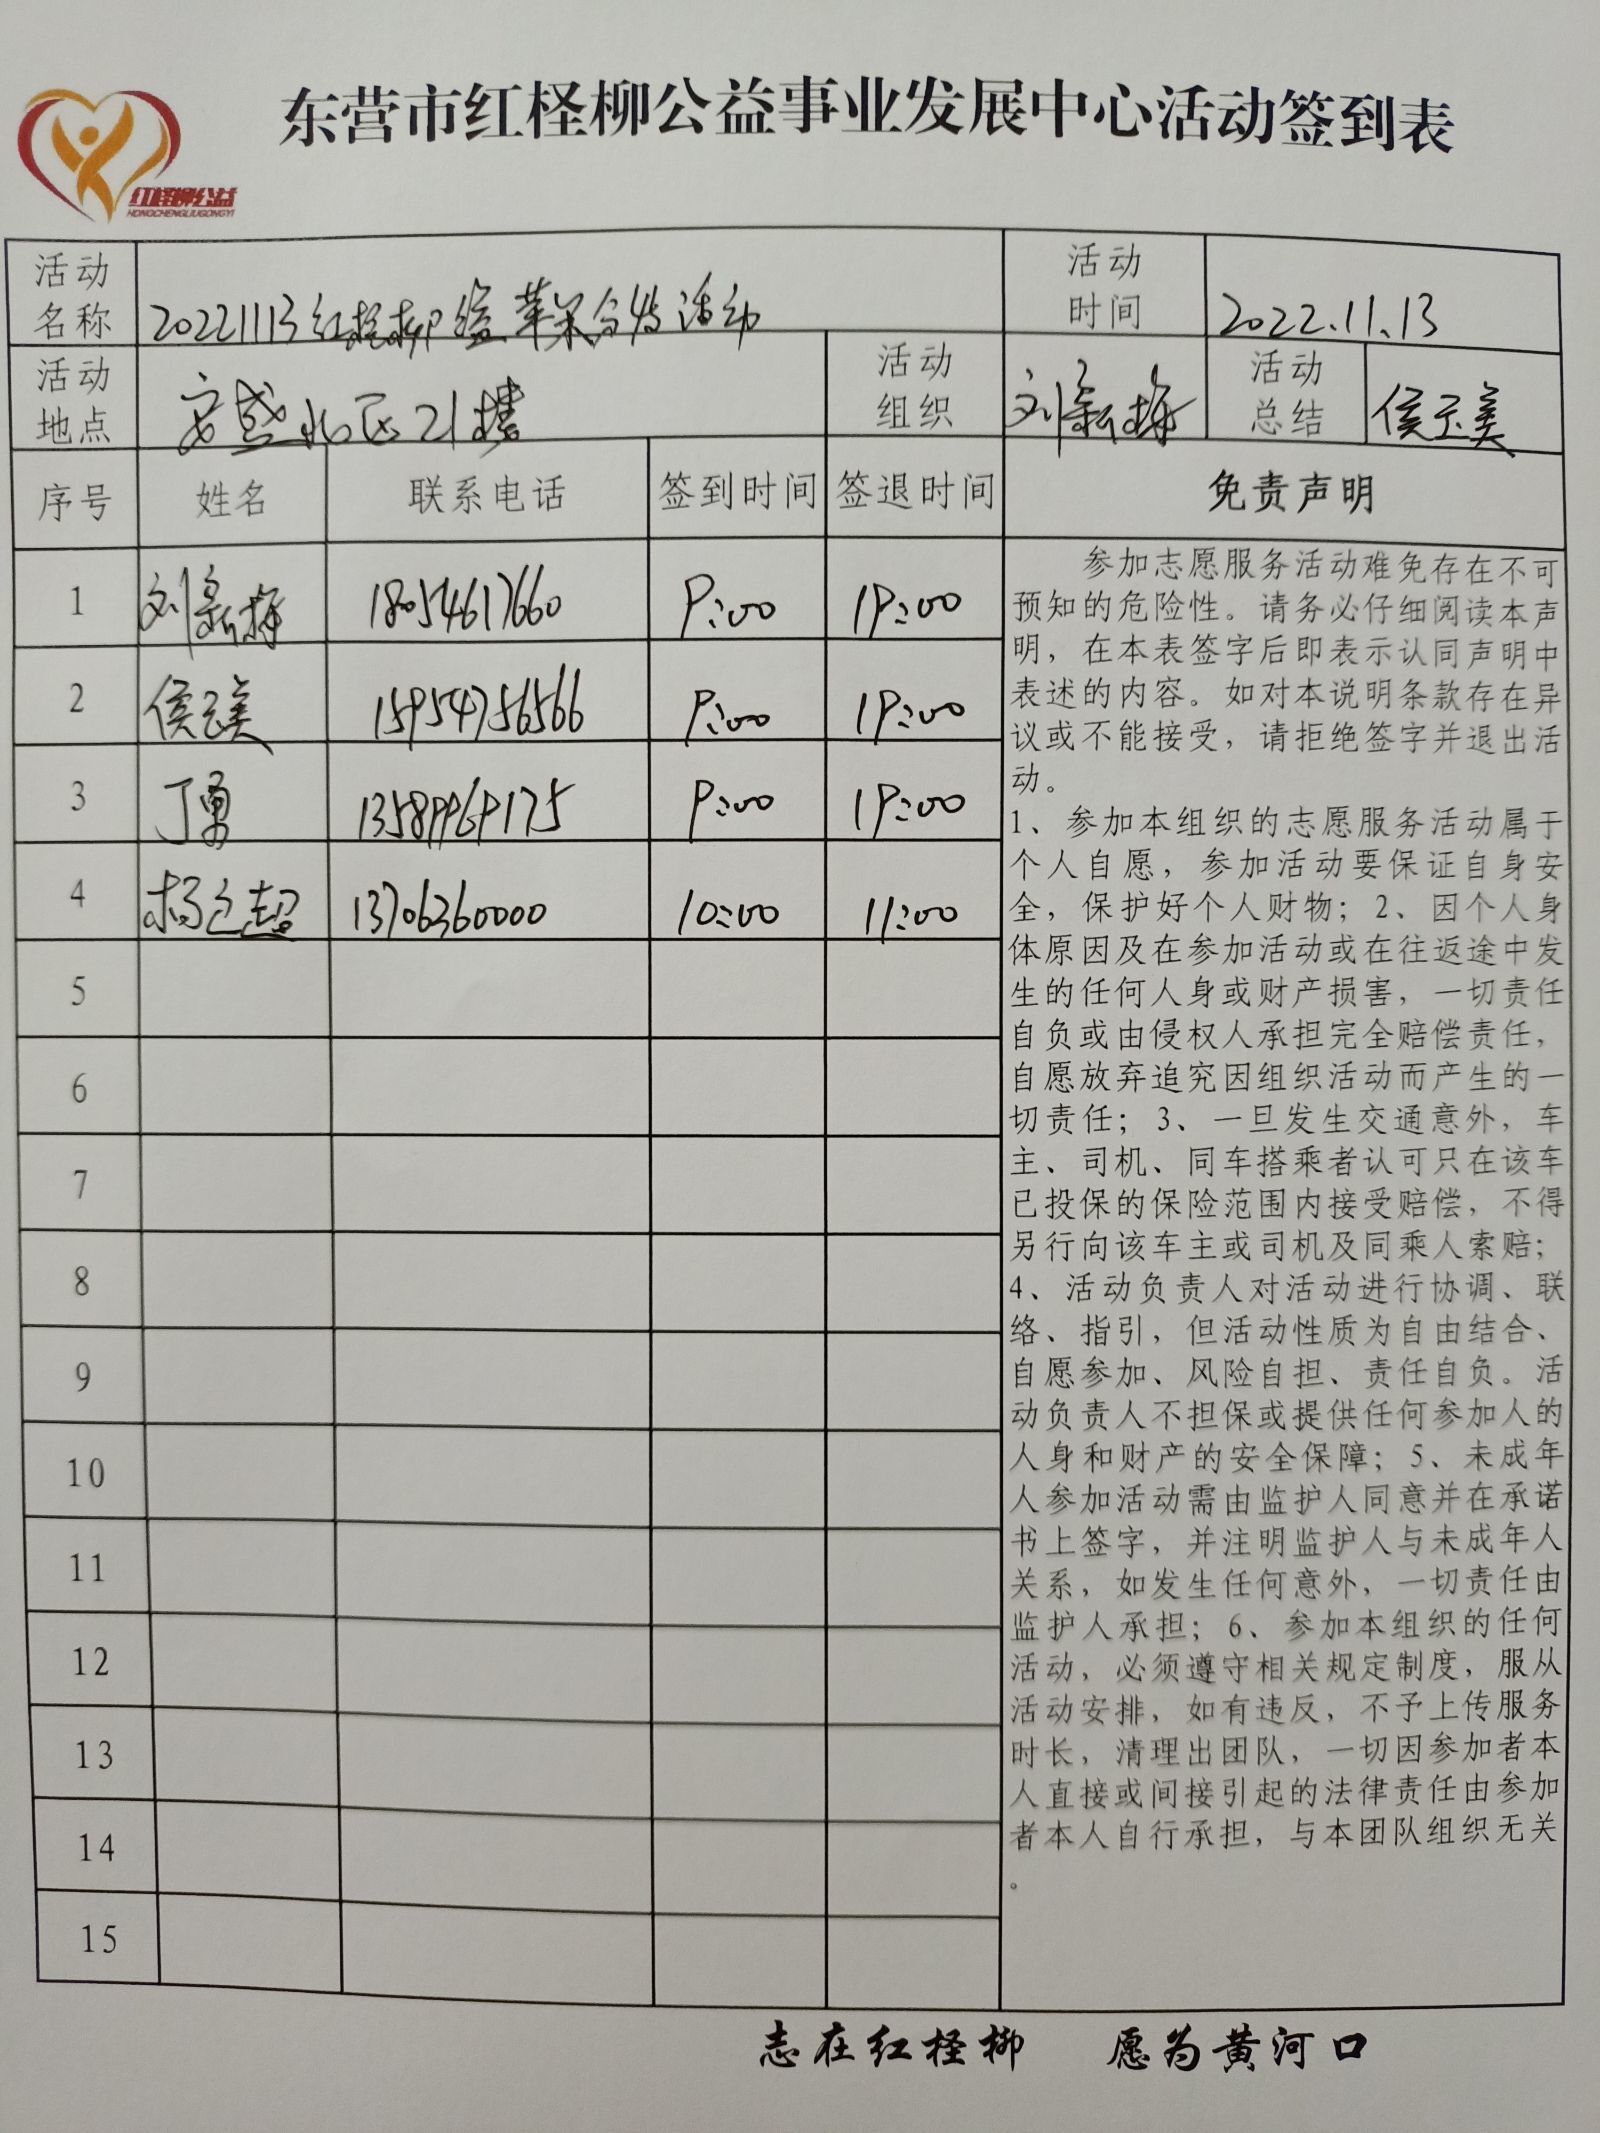 东营市红柽柳公益事业发展中心活动签到表
红柽柳公益
HONGCHENGLIUGONGYI
活动名称 20221113红柽柳 苹果 活动 活动时间 2022.11.13
活动地点 安盛北区21楼 活动组织 刘新梅 活动总结 侯玉美
序号 姓名 联系电话 签到时间 签退时间 免责声明
1 刘新梅 18054617660 9:00 19:00
2 侯玉美 15954756566 9:00 19:00
3 丁勇 13589969175 9:00 19:00
4 杨 超 13706360000 10:00 11:00
5
6
7
8
9
10
11
12
13
14
15
参加志愿服务活动难免存在不可
预知的危险性。请务必仔细阅读本声
明，在本表签字后即表示认同声明中
表述的内容。如对本说明条款存在异
议或不能接受，请拒绝签字并退出活
动。
1、参加本组织的志愿服务活动属于
个人自愿，参加活动要保证自身安
全，保护好个人财物；2、因个人身
体原因及在参加活动或在往返途中发
生的任何人身或财产损害，一切责任
自负或由侵权人承担完全赔偿责任，
自愿放弃追究因组织活动而产生的一
切责任；3、一旦发生交通意外，车
主、司机、同车搭乘者认可只在该车
已投保的保险范围内接受赔偿，不得
另行向该车主或司机及同乘人索赔；
4、活动负责人对活动进行协调、联
络、指引，但活动性质为自由结合、
自愿参加、风险自担、责任自负。活
动负责人不担保或提供任何参加人的
人身和财产的安全保障；5、未成年
人参加活动需由监护人同意并在承诺
书上签字，并注明监护人与未成年人
关系，如发生任何意外，一切责任由
监护人承担；6、参加本组织的任何
活动，必须遵守相关规定制度，服从
活动安排，如有违反，不予上传服务
时长，清理出团队，一切因参加者本
人直接或间接引起的法律责任由参加
者本人自行承担，与本团队组织无关
。
志在红柽柳 愿为黄河口